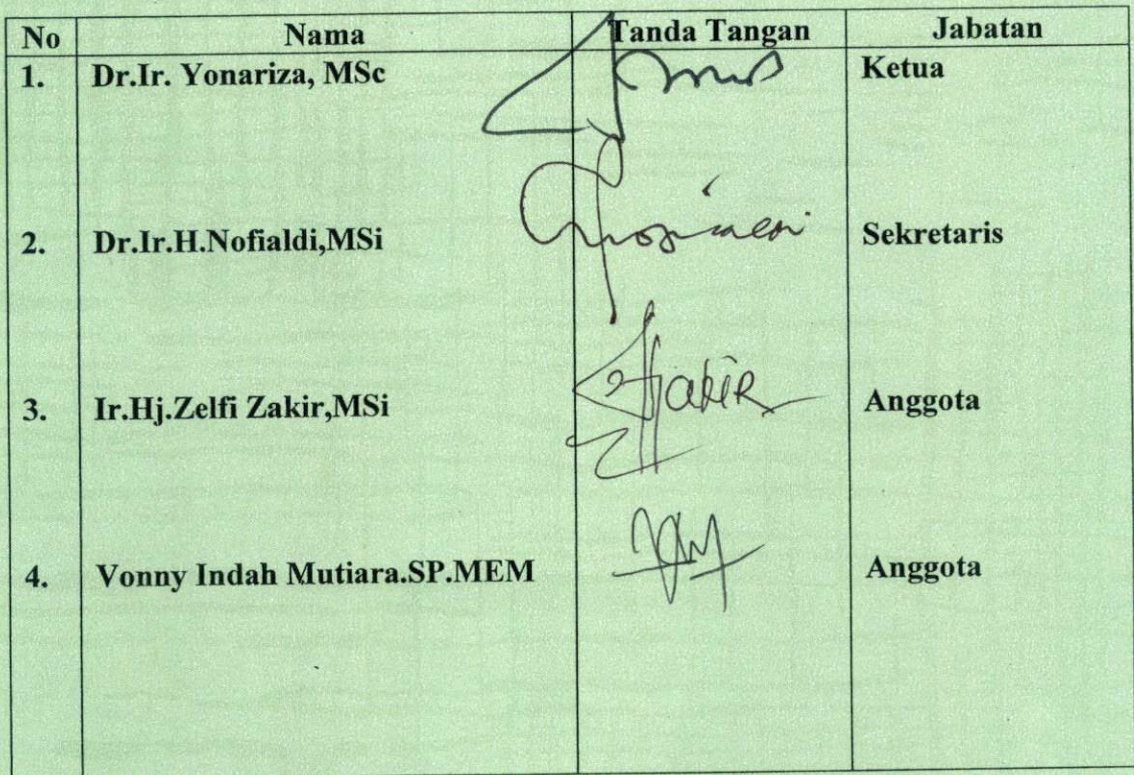 No Nama Tanda Tangan Jabatan
1. Dr.Ir. Yonariza, MSc Ketua
2. Dr.Ir.H.Nofialdi,MSi Sekretaris
3. Ir.Hj.Zelfi Zakir,MSi Anggota
4. Vonny Indah Mutiara.SP.MEM Anggota